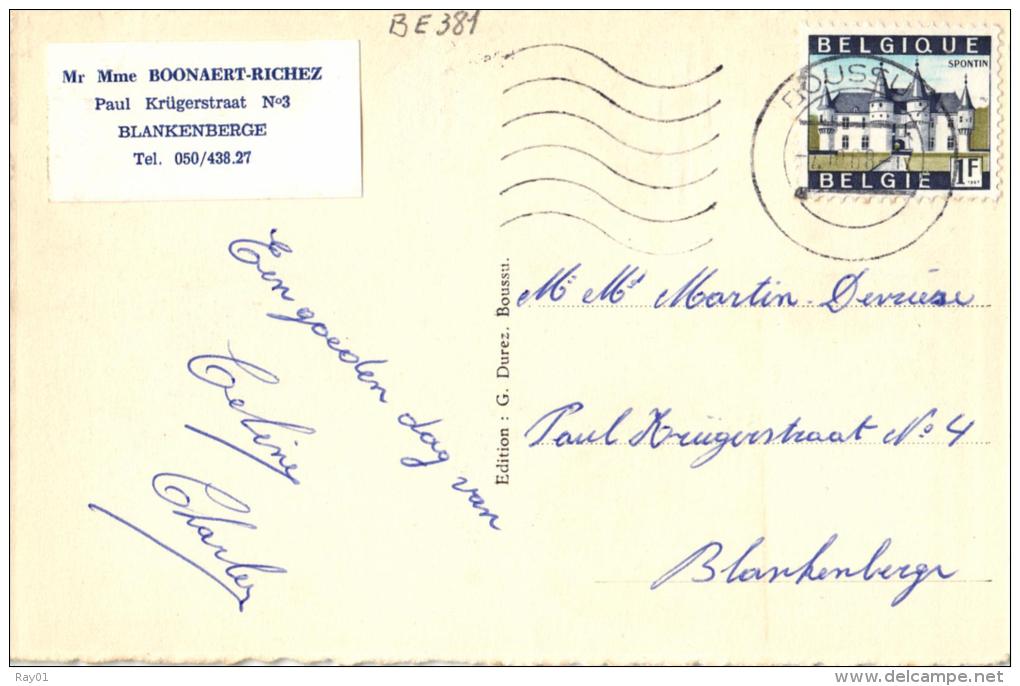 BE 381
Mr Mme BOONAERT-RICHEZ
Paul Krügerstraat No3
BLANKENBERGE
Tel. 050/438.27
BELGIQUE
SPONTIN
BELGIË 1F
BOUSSU
Een goeden dag van
Celine
Charles
Edition : G. Durez. Boussu.
Mr Md Martin-Devriese
Paul Krügerstraat No 4
Blankenberge
Ray01
http://www.delcampe.net